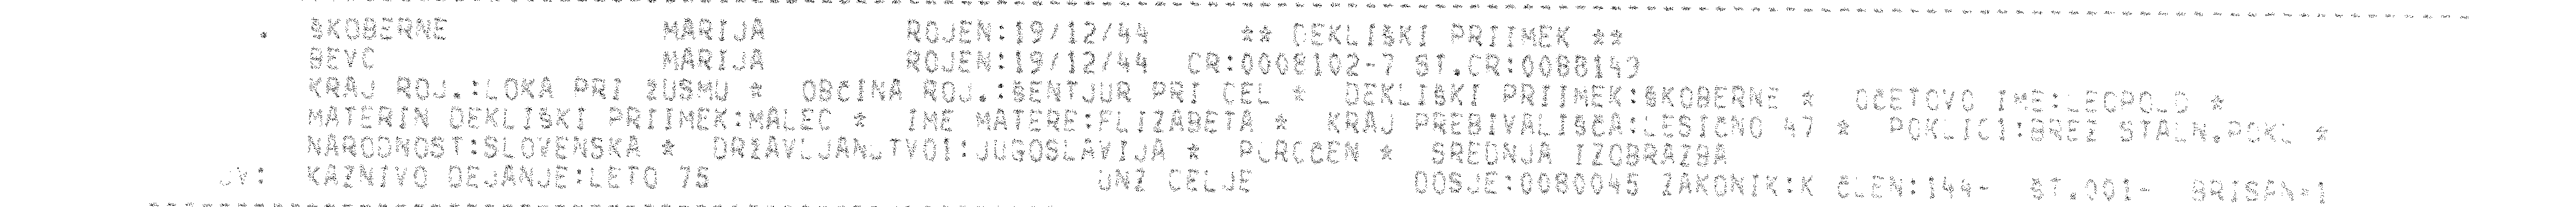 . ŠKOBERNE MARIJA ROJEN:19/12/44 ** DEKLIŠKI PRIIMEK **
BEVC MARIJA ROJEN:19/12/44 CR:0008102-7 ST.CR:0088149
KRAJ ROJ.:LOKA PRI ŽUSMU * OBČINA ROJ.:ŠENTJUR PRI CEL * DEKLIŠKI PRIIMEK:ŠKOBERNE * OČETOVO IME:LEOPOLD *
MATERIN DEKLIŠKI PRIIMEK:MALEC * IME MATERE:ELIZABETA * KRAJ PREBIVALIŠČA:LESIČNO 47 * POKLIC1:BREZ STALN.POKL *
NARODNOST:SLOVENSKA * DRŽAVLJANSTVO1:JUGOSLAVIJA * POROČEN * SREDNJA IZOBRAZBA
JV: KAZNIVO DEJANJE:LETO 75 UNZ CELJE DOSJE:0080045 ZAKONIK:K ČLEN:144- ŠT.001- BRISAN=1